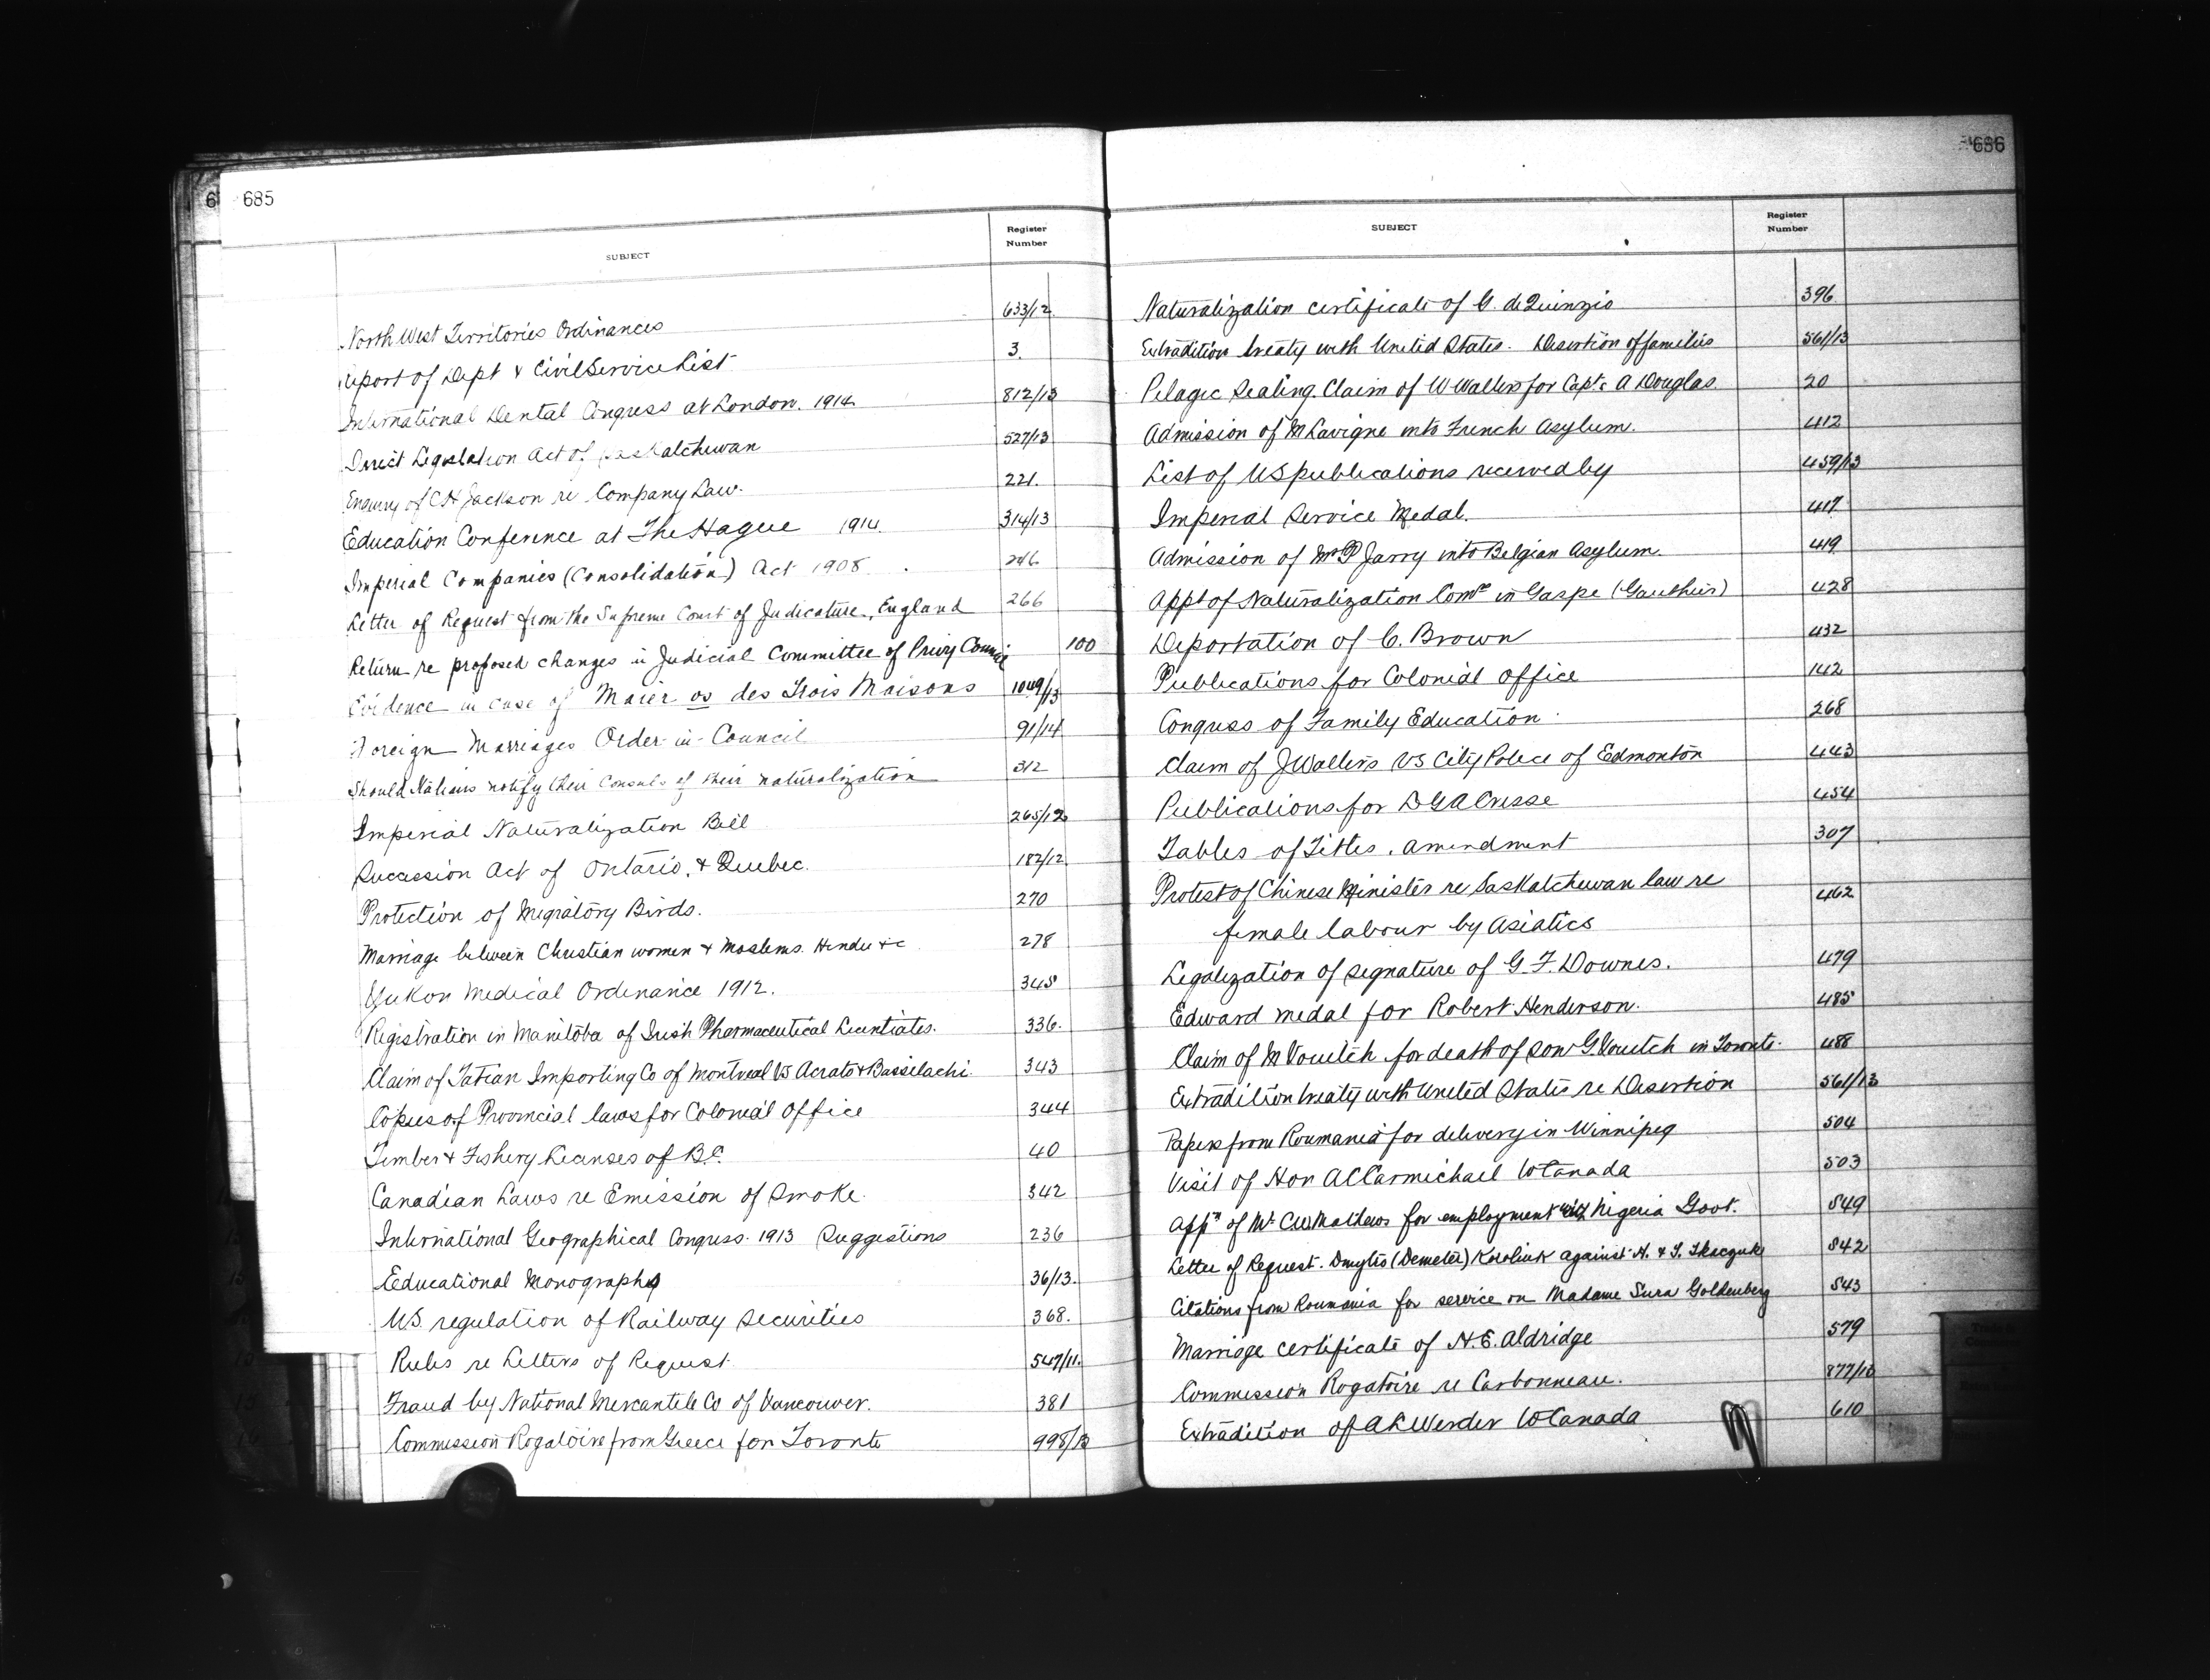 685
SUBJECT
Register Number
North West Territories Ordinances 633/12
Report of Dept & Civil Service List 3.
International Dental Congress at London. 1914 812/13
Direct Legislation Act of Saskatchewan 527/13
Enquiry of C H Jackson re Company Law. 221.
Education Conference at The Hague 1914. 314/13
Imperial Companies (Consolidation) Act 1908 246
Letter of Request from the Supreme Court of Judicature, England 266
Return re proposed changes in Judicial Committee of Privy Council 100
Evidence in case of Maier vs des Trois Maisons 1049/13
Foreign Marriages Order-in-Council 91/14
Should Nations notify their Consuls of their naturalization 312
Imperial Naturalization Bill 265/12
Succession Act of Ontario, & Quebec. 182/12
Protection of Migratory Birds. 270
Marriage between Christian women & Moslems. Hindu &c 278
Yukon Medical Ordinance 1912. 345
Registration in Manitoba of Irish Pharmaceutical Licentiates. 336.
Claim of Tatian Importing Co of Montreal vs Acrato & Bassilachi 343
Copies of Provincial laws for Colonial Office 344
Timber & Fishery Licenses of B.C. 40
Canadian Laws re Emission of Smoke. 342
International Geographical Congress. 1913 Suggestions 236
Educational Monographs 36/13.
U.S. regulation of Railway Securities 368.
Rules re Letters of Request. 547/11.
Fraud by National Mercantile Co of Vancouver. 381
Commission Rogatoire from Greece for Toronto 998/13
686
SUBJECT
Register Number
Naturalization certificate of G. de Quinzio 396
Extradition treaty with United States. Desertion of families 561/13
Pelagic Sealing. Claim of W Walters for Capt. A Douglas. 20
Admission of M Lavigne into French Asylum. 412
List of U S publications received by 459/13
Imperial Service Medal. 417
Admission of Mr P Jarry into Belgian Asylum. 419
Appt of Naturalization Comr in Gaspe (Gauthier) 428
Deportation of C. Brown 432
Publications for Colonial Office 142
Congress of Family Education. 268
Claim of J Walters vs City Police of Edmonton 443
Publications for D G A Crisse 454
Tables of Titles. amendment 307
Protest of Chinese Minister re Saskatchewan law re 462
female labour by Asiatics
Legalization of signature of G. F. Downes. 479
Edward medal for Robert Henderson. 485
Claim of M Voutch for death of son G. Voutch in Toronto. 488
Extradition treaty with United States re Desertion 561/13
Papers from Roumania for delivery in Winnipeg 504
Visit of Hon A C Carmichael to Canada 503
Appn of Mr C W Mathews for employment with Nigeria Govt. 549
Letter of Request. Dmytro (Demeter) Koroliuk against N. & T. Tkaczuk 542
Citations from Roumania for service on Madame Sura Goldenberg 543
Marriage certificate of N. E. Aldridge 579
Commission Rogatoire re Carbonneau. 877/13
Extradition of A L Werder to Canada 610